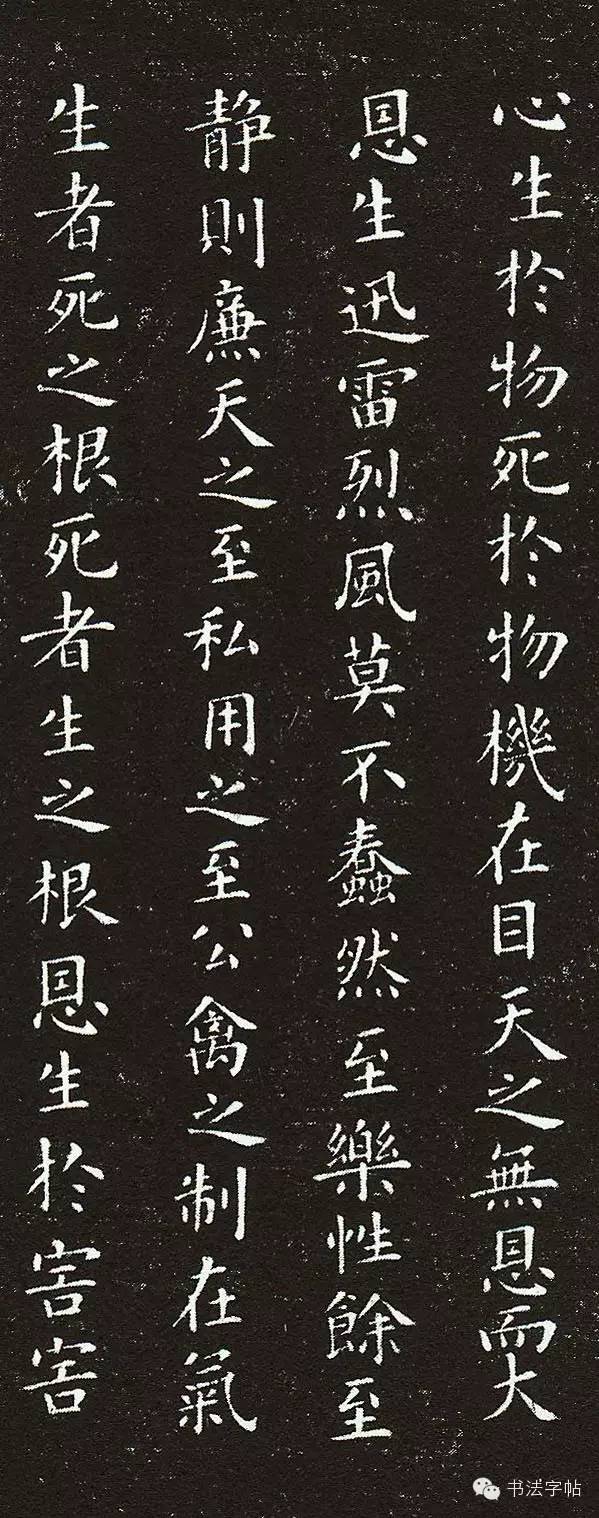 心生於物死於物機在目天之無恩而大
恩生迅雷烈風莫不蠢然至樂性餘至
静則廉天之至私用之至公禽之制在氣
生者死之根死者生之根恩生於害害
书法字帖